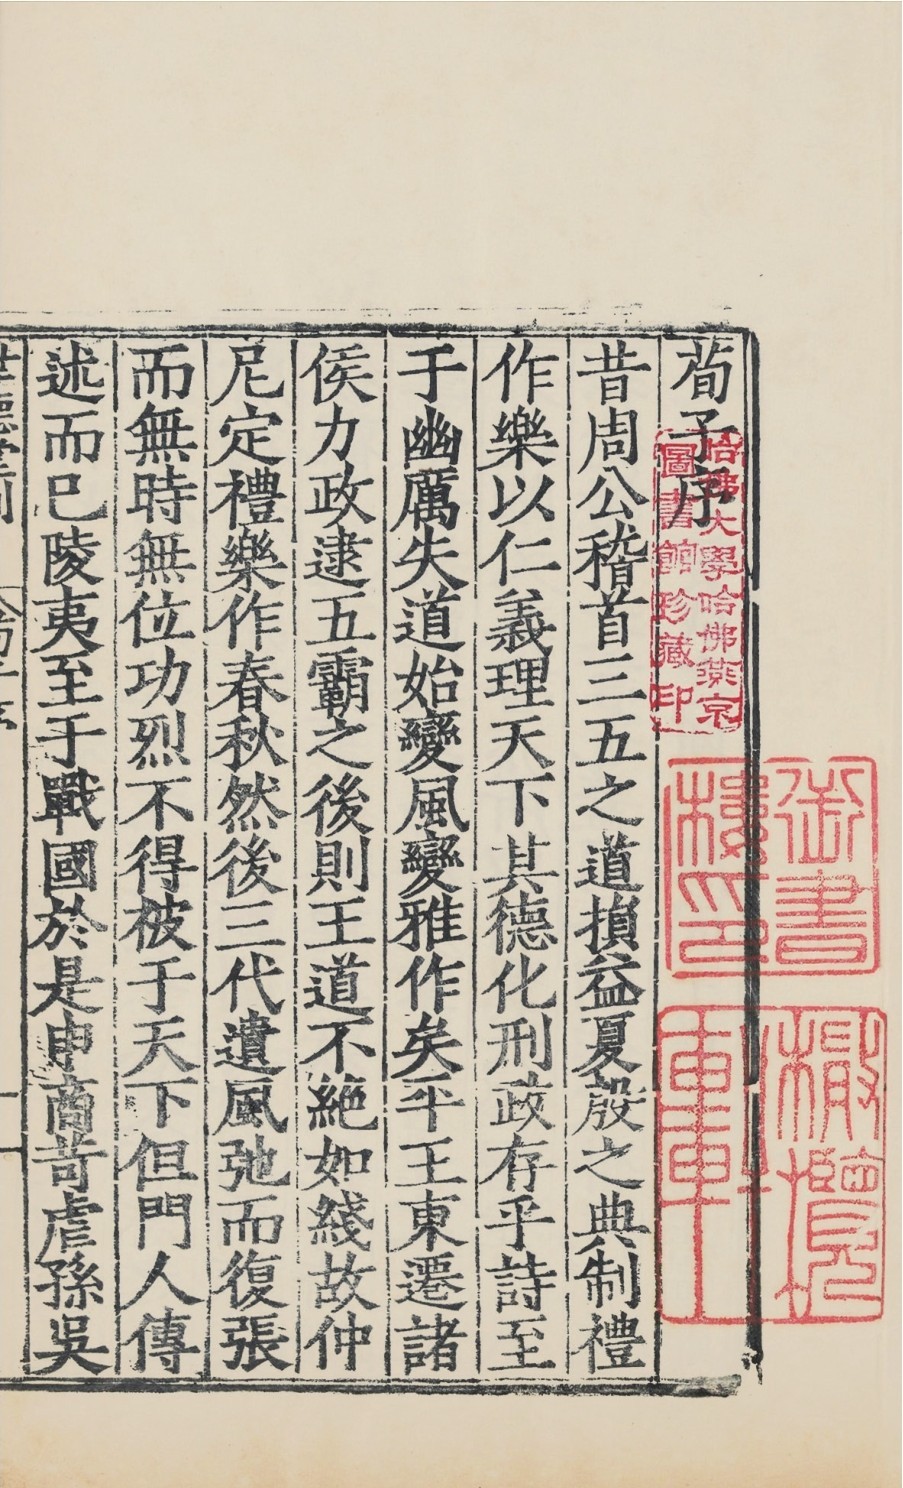 荀子序
昔周公稽首三五之道損益夏殷之典制禮
作樂以仁義理天下其德化刑政存乎詩至
于幽厲失道始變風變雅作矣平王東遷諸
侯力政逮五霸之後則王道不絶如綫故仲
尼定禮樂作春秋然後三代遺風弛而復張
而無時無位功烈不得被于天下但門人傳
述而已陵夷至于戰國於是申商苛虐孫吳
世德堂刊
哈佛大學哈佛燕京
圖書館珍藏印
御書
樓印